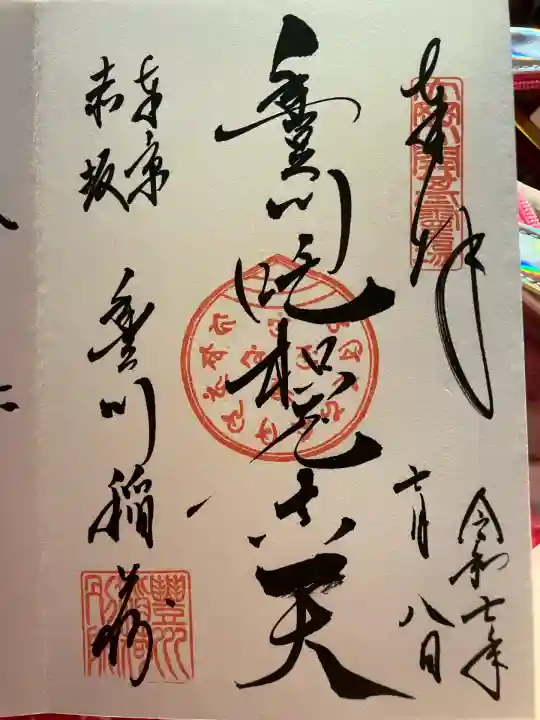 奉拝
令和七年
月八日
豊川吒枳尼真天
東京
赤坂
豊川稲荷